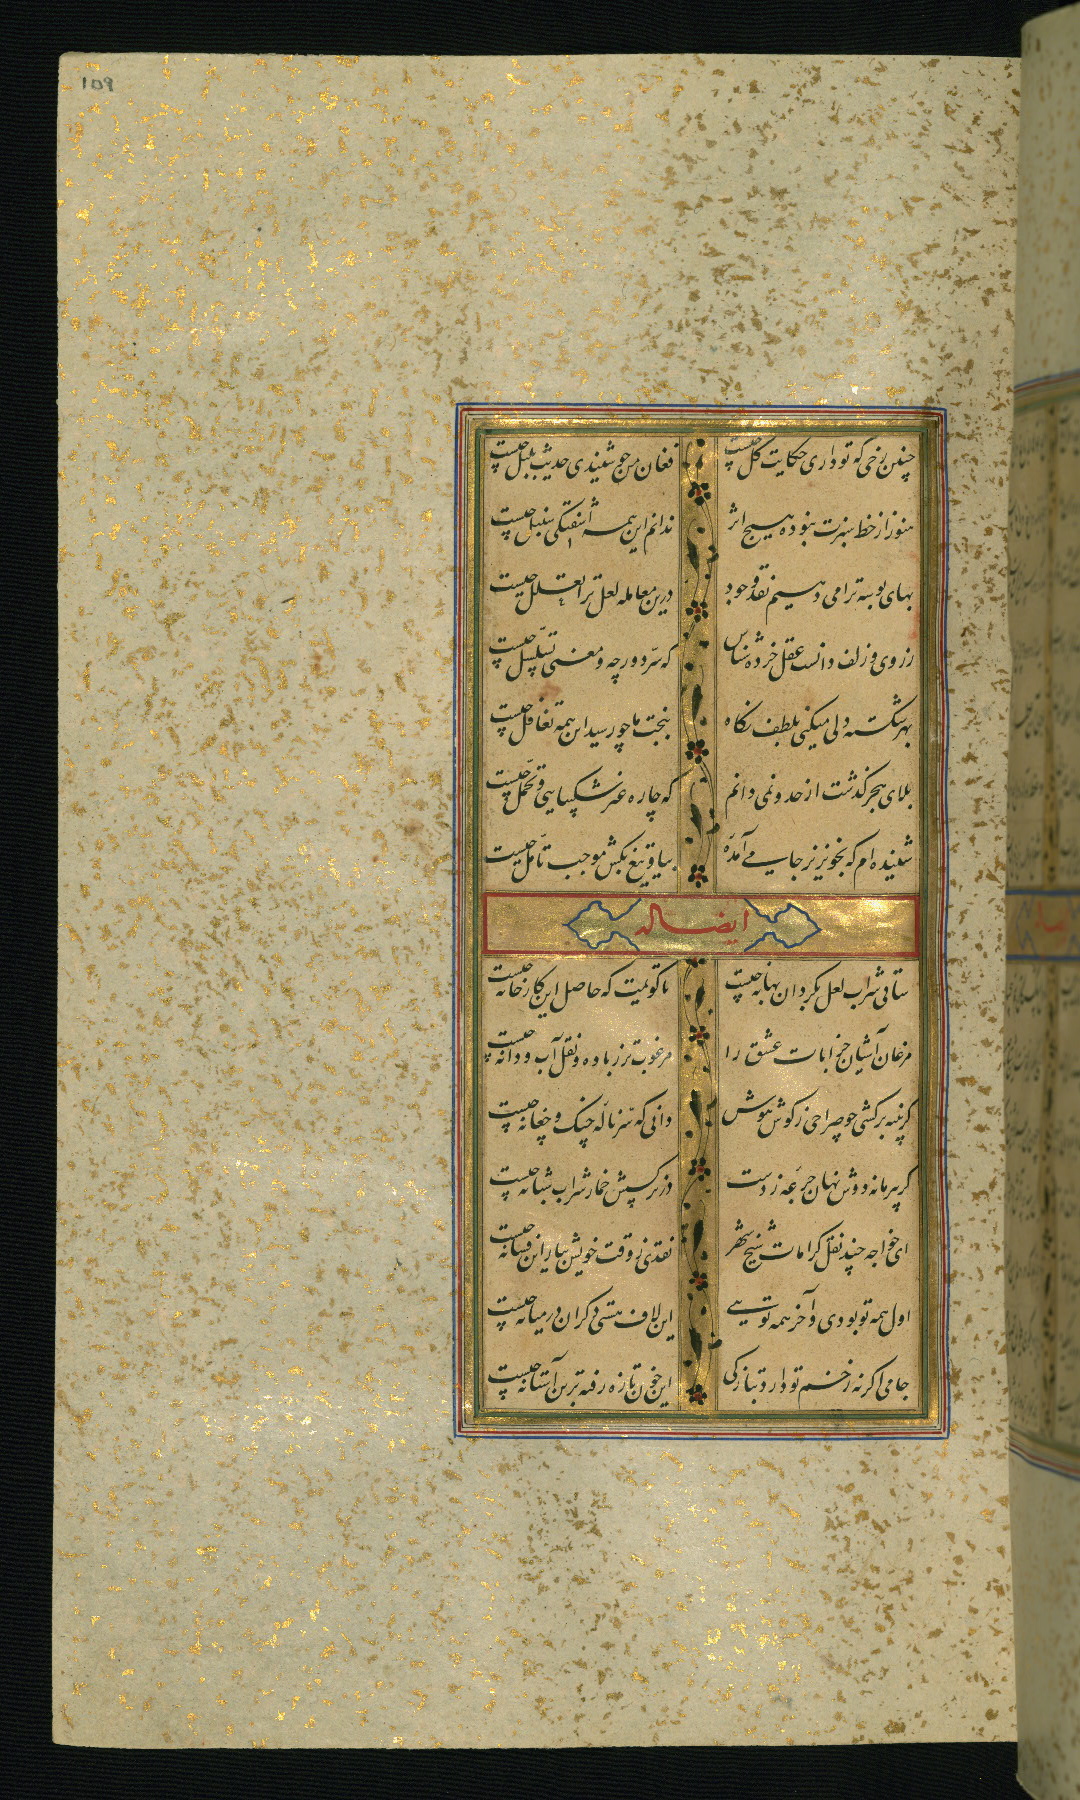 ۱۵۹
چنین رخی که تو داری حکایت گل چیست
فغان من چو شنیدی حدیث بلبل چیست
هنوز از خط سبزت نبوده هیچ اثر
ندانم این همه آشفتگی سنبل چیست
بهای بوسه ترا می دهیم نقد وجود
درین معامله لعل ترا تعلل چیست
ز روی و زلف تو دانست عقل خرده شناس
که سر دور چه و معنی تسلسل چیست
بهر شکسته دلی میکنی بلطف نگاه
ببخت ما چو رسید این همه تغافل چیست
بلای هجر گذشت از حد و نمی دانم
که چاره غیر شکیبایی و تحمل چیست
شنیده ام که بخونریز جامی آمده
بیا و تیغ بکش موجب تأمل چیست
ایضا له
ساقی شراب لعل بگردان بهانه چیست
تا گویمت که حاصل این کارخانه چیست
مرغان آشیان خرابات عشق را
مرغوبتر ز باده و نقل آب و دانه چیست
گر پنبه برکشی چو صراحی ز گوش هوش
دانی که سر ناله چنگ و چغانه چیست
گر پیر ما نه دوش نهان جرعه زدست
در نرگسش خمار شراب شبانه چیست
ای خواجه چند نقل کرامات شیخ شهر
نقدی ز وقت خویش بیار این فسانه چیست
اول همه تو بودی و آخر همه تویی
این لاف هستی دگران در میانه چیست
جامی اگر نه زخم تو دارد بتازگی
این خون تازه رفته برین آستانه چیست